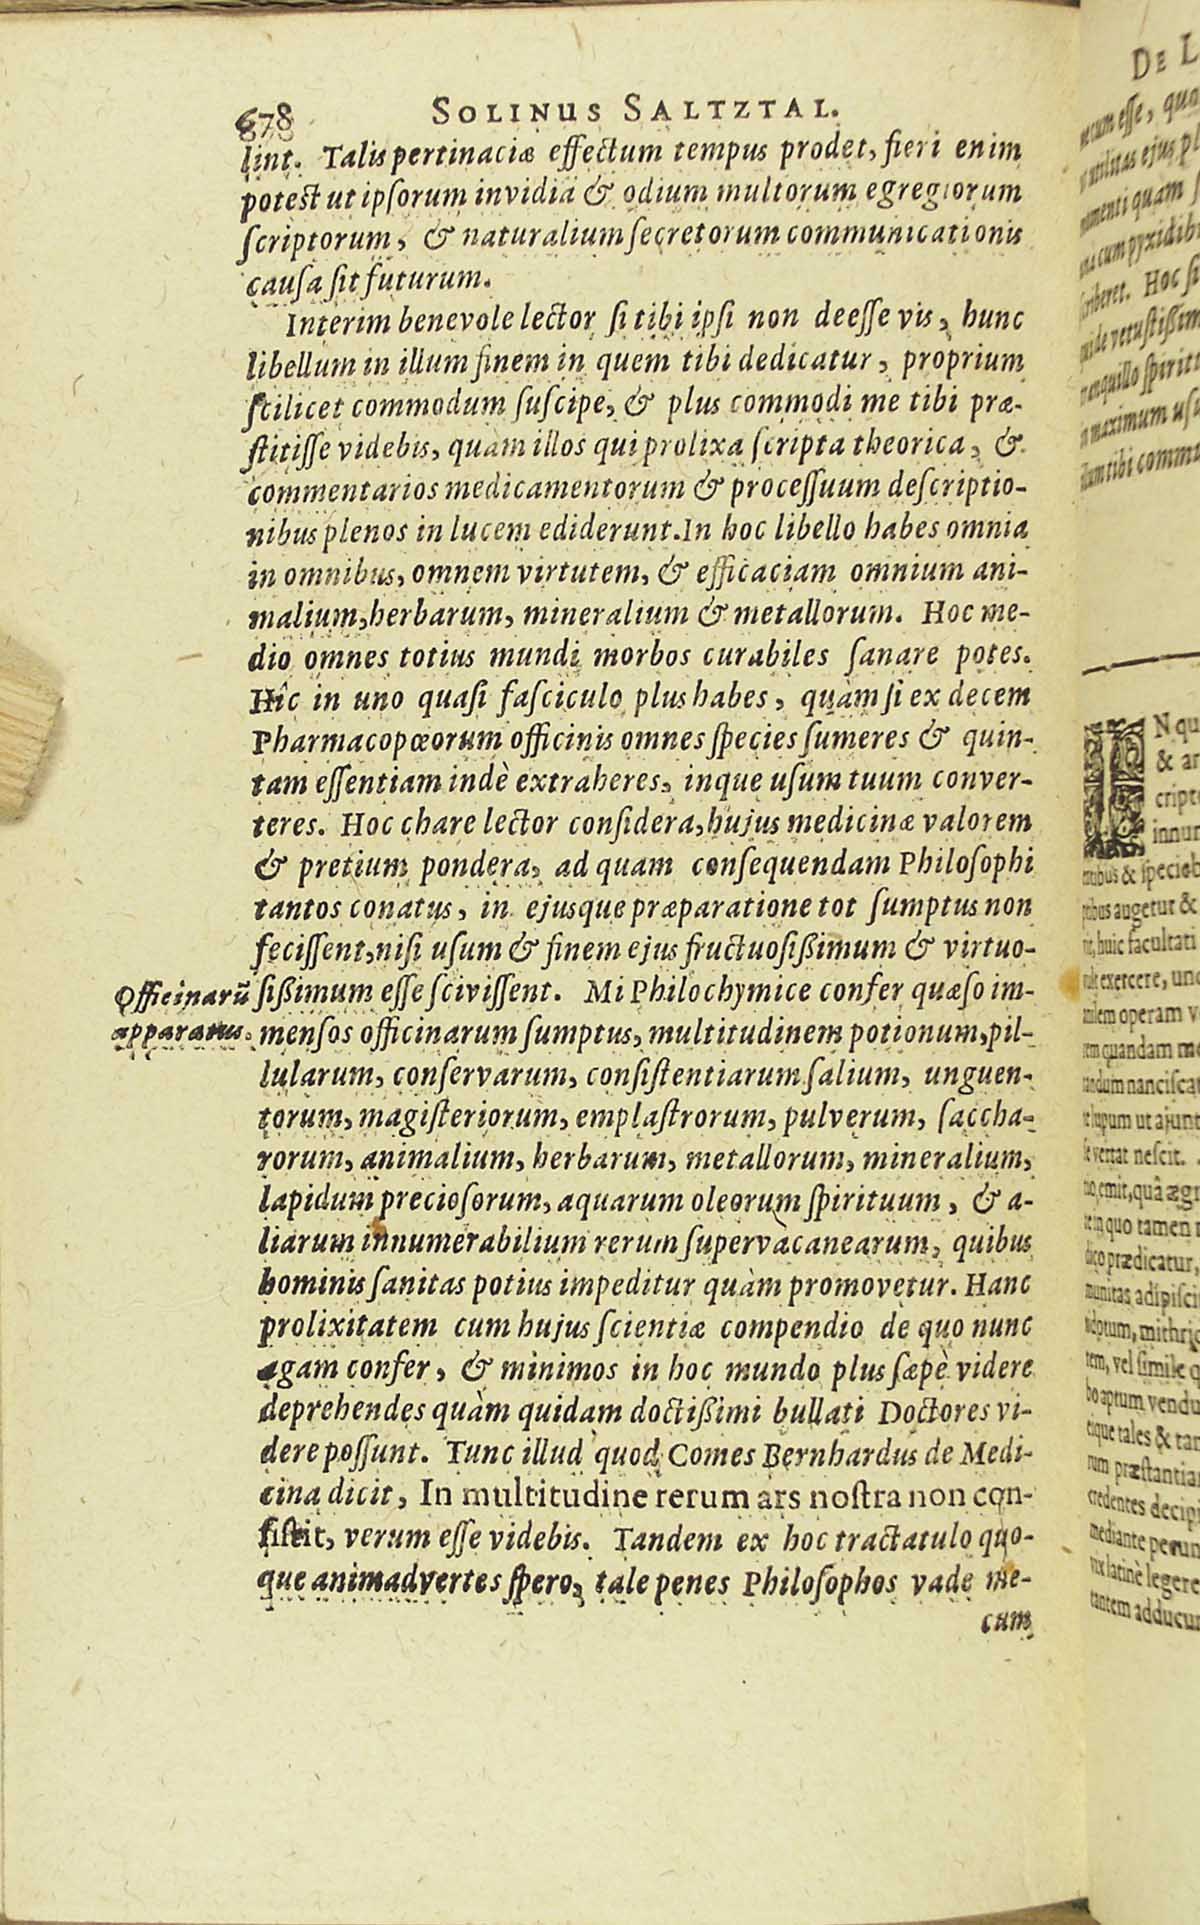 678 SOLINUS SALTZTAL.
lint. Talis pertinaciæ effectum tempus prodet, fieri enim
potest ut ipsorum invidia & odium multorum egregiorum
scriptorum, & naturalium secretorum communicationis
causa sit futurum.
Interim benevole lector si tibi ipsi non deesse vis, hunc
libellum in illum finem in quem tibi dedicatur, proprium
scilicet commodum suscipe, & plus commodi me tibi præ-
stitisse videbis, quàm illos qui prolixa scripta theorica, &
commentarios medicamentorum & processuum descriptio-
nibus plenos in lucem ediderunt. In hoc libello habes omnia
in omnibus, omnem virtutem, & efficaciam omnium ani-
malium, herbarum, mineralium & metallorum. Hoc me-
dio omnes totius mundi morbos curabiles sanare potes.
Hîc in uno quasi fasciculo plus habes, quàm si ex decem
Pharmacopœorum officinis omnes species sumeres & quin-
tam essentiam indè extraheres, inque usum tuum conver-
teres. Hoc chare lector considera, hujus medicinæ valorem
& pretium pondera, ad quam consequendam Philosophi
tantos conatus, in ejusque præparatione tot sumptus non
fecissent, nisi usum & finem ejus fructuosißimum & virtuo-
sißimum esse scivissent. Mi Philochymice confer quæso im-
mensos officinarum sumptus, multitudinem potionum, pil-
lularum, conservarum, consistentiarum salium, unguen-
torum, magisteriorum, emplastrorum, pulverum, saccha-
rorum, animalium, herbarum, metallorum, mineralium,
lapidum preciosorum, aquarum oleorum spirituum, & a-
liarum innumerabilium rerum supervacanearum, quibus
hominis sanitas potius impeditur quàm promovetur. Hanc
prolixitatem cum hujus scientiæ compendio de quo nunc
agam confer, & minimos in hoc mundo plus sæpè videre
deprehendes quàm quidam doctißimi bullati Doctores vi-
dere possunt. Tunc illud quod Comes Bernhardus de Medi-
cina dicit, In multitudine rerum ars nostra non con-
sistit, verum esse videbis. Tandem ex hoc tractatulo quo-
que animadvertes spero, tale penes Philosophos vade me-
cum
Officinarũ
apparatus.
DE L
esse, qua
utilitas ejus
quam
cum pyxidib
scriberet. Hoc si
de vetustißim
tranquillo spirit
maximum usu
tibi commu
IN qu
& ar
cript
innum
& specieb
augetur &
huic facultati
exercere, und
operam v
quandam me
nanciscat
lupum ut ajunt
vertat nescit.
emit, quâ ægr
in quo tamen
prædicatur,
adipisci
mithri
tem, vel simile q
bo aptum vendu
tales & tan
rum præstantia
credentes decip
mediante pecun
vix latinè legere
tantem adducun